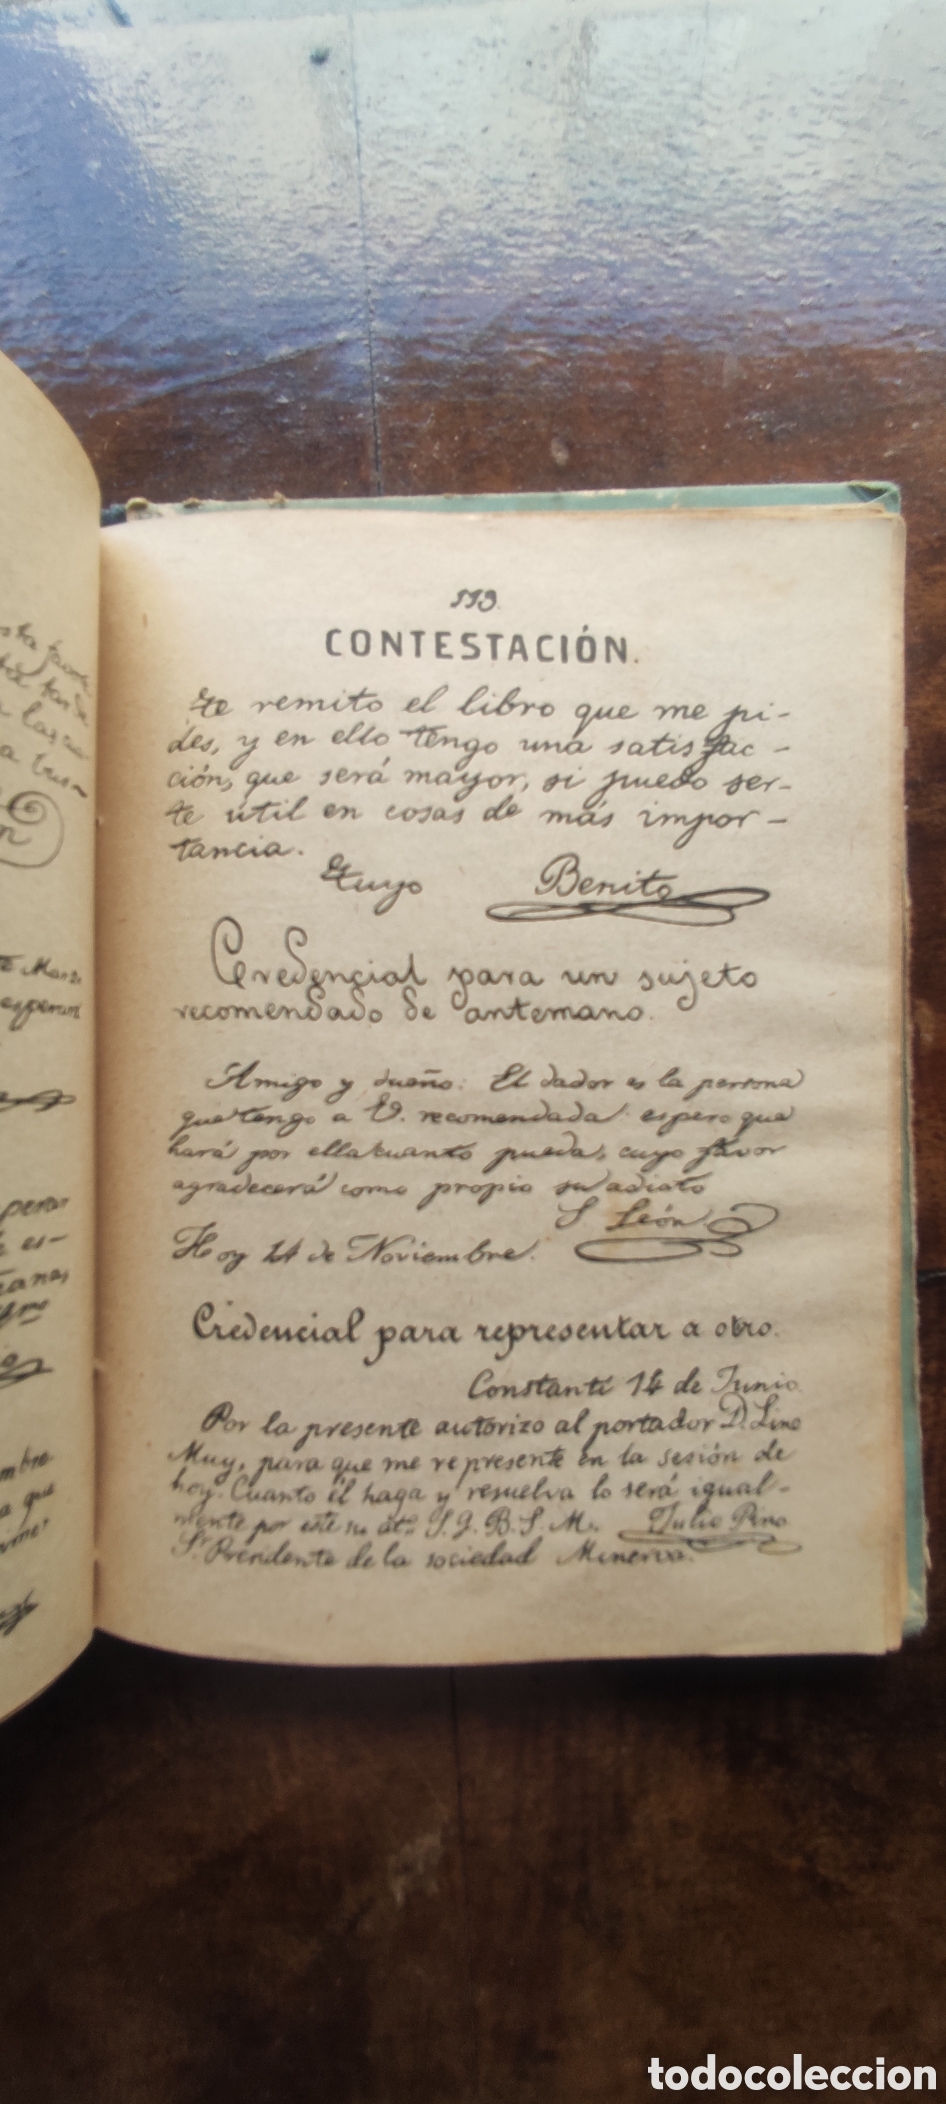 113.
CONTESTACIÓN.
Te remito el libro que me pi-
des, y en ello tengo una satisfac-
ción, que será mayor, si puedo ser-
te útil en cosas de más impor-
tancia.
Tuyo Benito
Credencial para un sujeto
recomendado de antemano.
Amigo y dueño: El dador es la persona
que tengo a V. recomendada: espero que
hará por ella cuanto pueda, cuyo favor
agradecerá como propio su adicto
S. León
Hoy 14 de Noviembre.
Credencial para representar a otro.
Constantí 14 de Junio.
Por la presente autorizo al portador D. Lino
Muy, para que me represente en la sesión de
hoy. Cuanto él haga y resuelva lo será igual-
mente por este su att.º S. S. Q. B. S. M. Julio Pino
Sr. Presidente de la sociedad Minerva.
todocoleccion